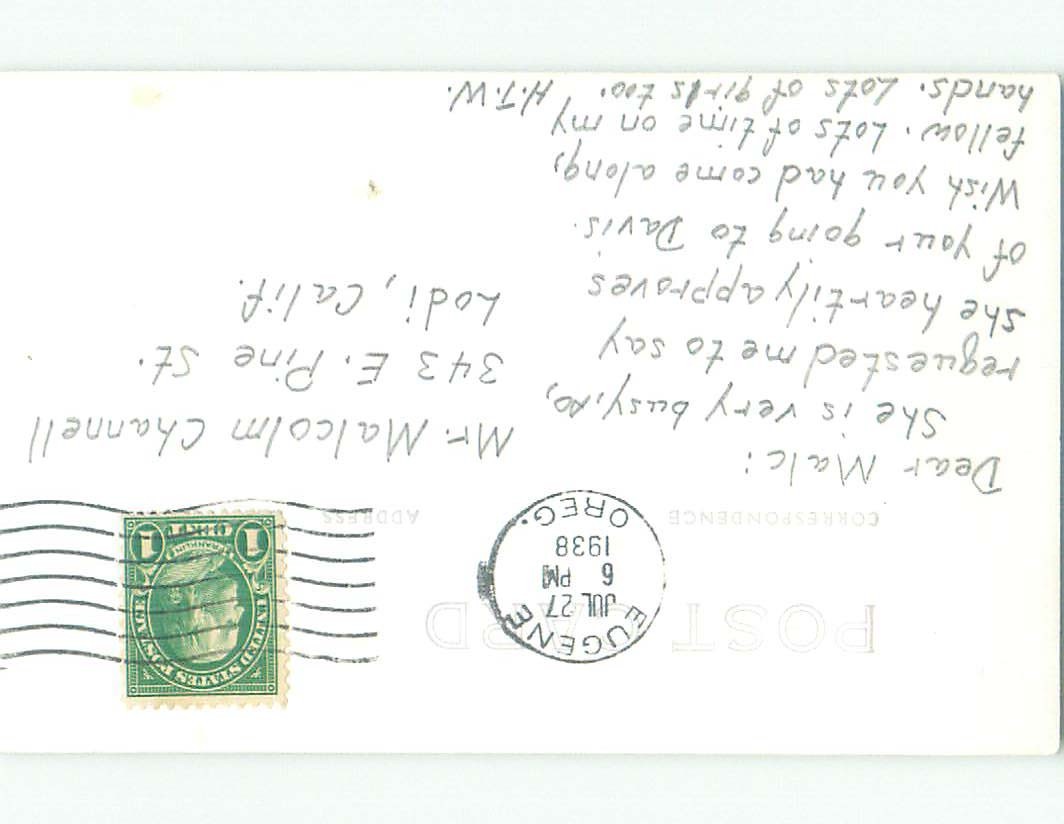 POST CARD
EUGENE
JUL 27
6 PM
1938
OREG.
UNITED STATES POSTAGE
FRANKLIN
1 CENT 1
CORRESPONDENCE
ADDRESS
Dear Malc:
She is very busy, so,
requested me to say
she heartily approves
of your going to Davis.
Wish you had come along,
fellow. Lots of time on my
hands. Lots of girls too. H.T.W.
Mr. Malcolm Channell
343 E. Pine St.
Lodi, Calif.